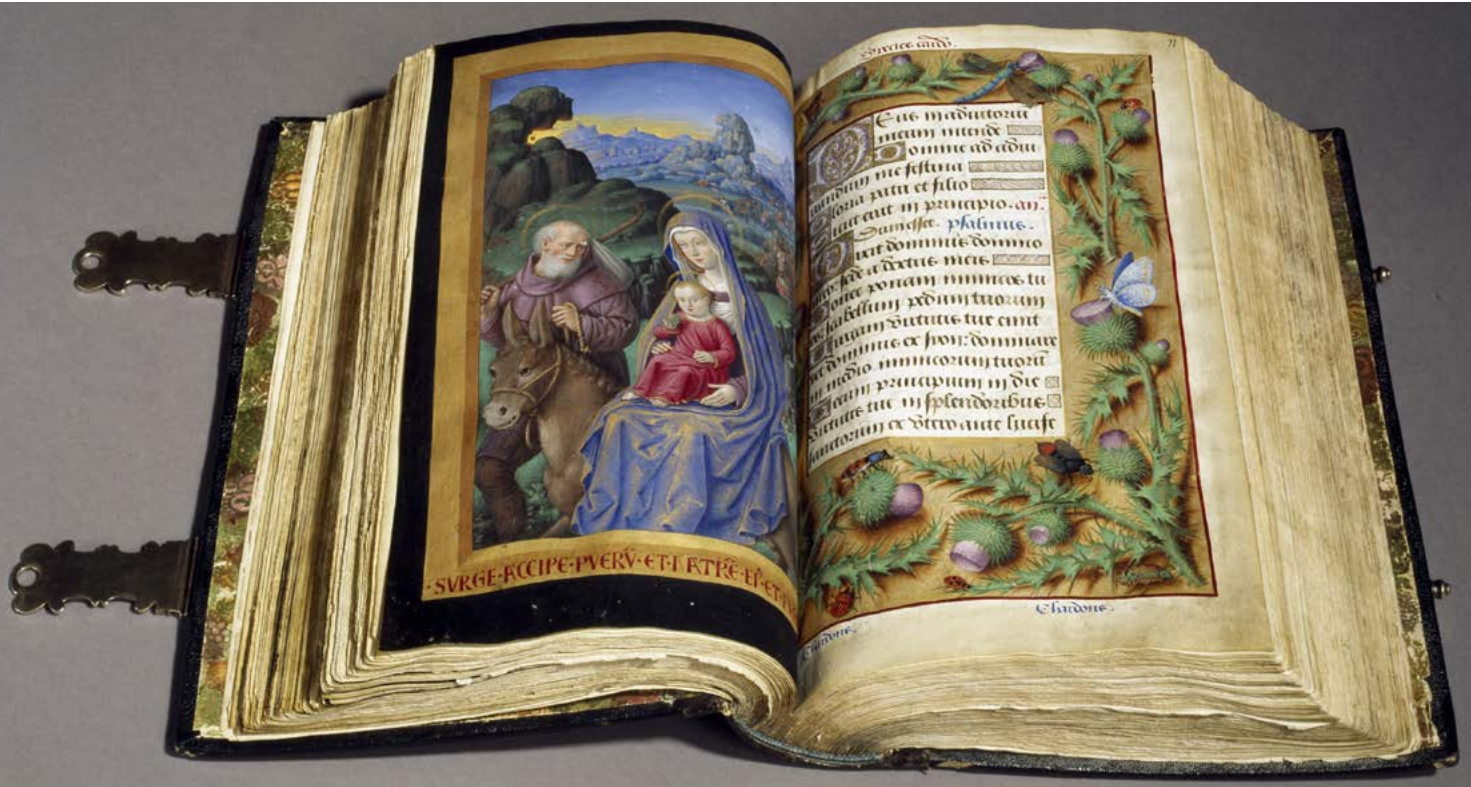 ·SVRGE·ACCIPE·PVERV̄·ET·MATRĒ·
77
Deus in adiutoriū
meum intende
Domine ad adiu
uandum me festina
Gloria patri et filio
Sicut erat in principio. an.
Dum esset. psalmus.
Dixit dominus domino
meo: sede a dextris meis
Donec ponam inimicos tu
os: scabellum pedum tuorum
Virgam virtutis tue emit
tet dominus ex syon: dominare
in medio inimicorum tuorū
Tecum principium in die
virtutis tue in splendoribus
sanctorum ex vtero ante lucife
Chardons.
Chardons.